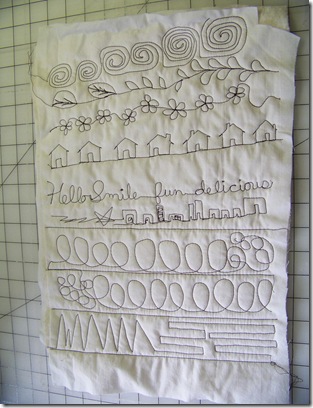 Hello Smile fun delicious